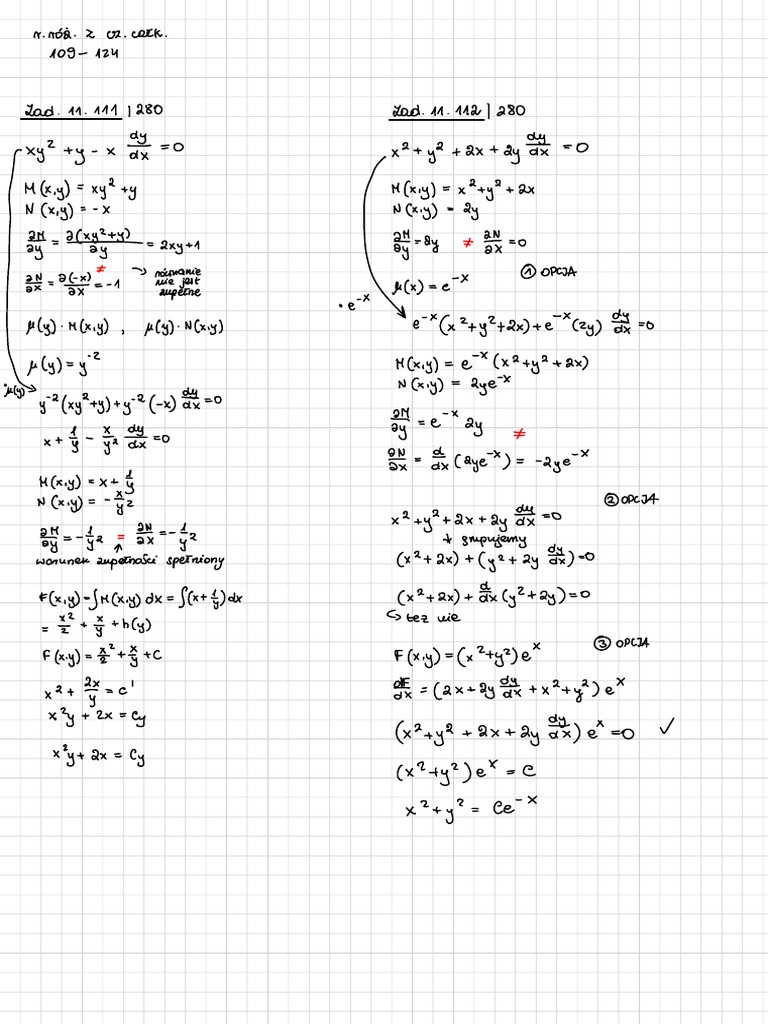 r. róż. z cz. całk.
109 – 124
Zad. 11. 111 | 280
xy² + y – x dy/dx = 0
M(x,y) = xy² + y
N(x,y) = – x
∂M/∂y = ∂(xy²+y)/∂y = 2xy+1
≠
∂N/∂x = ∂(–x)/∂x = –1
równanie
nie jest
zupełne
μ(y) · M(x,y) , μ(y) · N(x,y)
μ(y) = y⁻²
·μ(y)
y⁻²(xy²+y) + y⁻²(–x) dy/dx = 0
x + 1/y – x/y² dy/dx = 0
M(x,y) = x + 1/y
N(x,y) = – x/y²
∂M/∂y = – 1/y² = ∂N/∂x = – 1/y²
warunek zupełności spełniony
F(x,y) = ∫M(x,y) dx = ∫(x + 1/y) dx
= x²/2 + x/y + h(y)
F(x,y) = x²/2 + x/y + C
x² + 2x/y = C'
x²y + 2x = Cy
x²y + 2x = Cy
Zad. 11. 112 | 280
x² + y² + 2x + 2y dy/dx = 0
M(x,y) = x² + y² + 2x
N(x,y) = 2y
∂M/∂y = 2y ≠ ∂N/∂x = 0
① OPCJA
μ(x) = e⁻ˣ
· e⁻ˣ
e⁻ˣ(x² + y² + 2x) + e⁻ˣ(2y) dy/dx = 0
M(x,y) = e⁻ˣ(x² + y² + 2x)
N(x,y) = 2ye⁻ˣ
∂M/∂y = e⁻ˣ 2y
≠
∂N/∂x = d/dx (2ye⁻ˣ) = –2ye⁻ˣ
② OPCJA
x² + y² + 2x + 2y dy/dx = 0
↓ grupujemy
(x² + 2x) + (y² + 2y dy/dx) = 0
(x² + 2x) + d/dx (y² + 2y) = 0
też nie
③ OPCJA
F(x,y) = (x² + y²) eˣ
dF/dx = (2x + 2y dy/dx + x² + y²) eˣ
(x² + y² + 2x + 2y dy/dx) eˣ = 0 ✓
(x² + y²) eˣ = C
x² + y² = Ce⁻ˣ